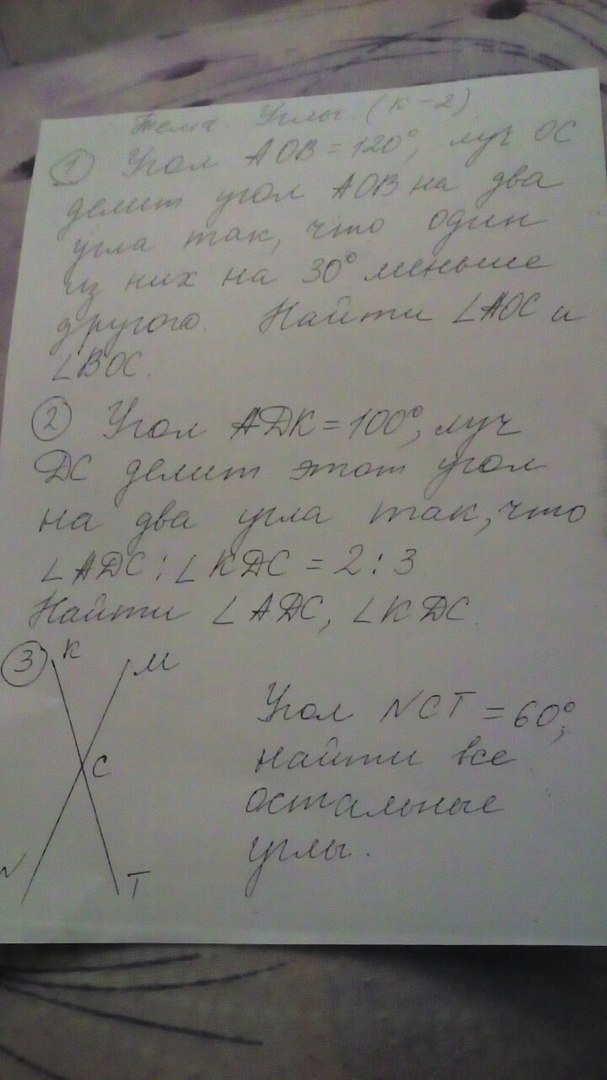 Тема. Углы. (К-2)
① Угол АОВ = 120°, луч ОС
делит угол АОВ на два
угла так, что один
из них на 30° меньше
другого. Найти ∠АОС и
∠ВОС.
② Угол АДК = 100°, луч
ДС делит этот угол
на два угла так, что
∠АДС : ∠КДС = 2 : 3
Найти ∠АДС, ∠КДС.
③ К М
С
N Т
Угол NCT = 60°,
найти все
остальные
углы.